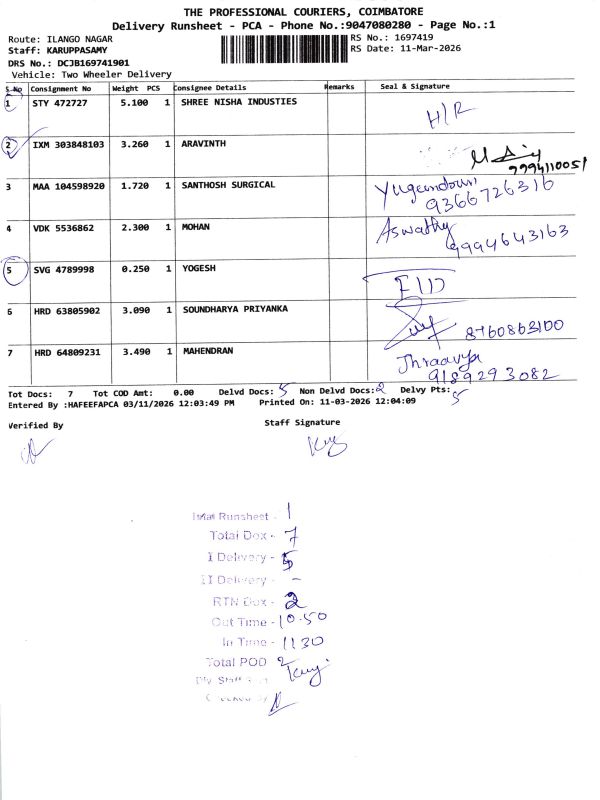 THE PROFESSIONAL COURIERS, COIMBATORE
Delivery Runsheet - PCA - Phone No.:9047080280 - Page No.:1
Route: ILANGO NAGAR RS No.: 1697419
Staff: KARUPPASAMY RS Date: 11-Mar-2026
DRS No.: DCJB169741901
Vehicle: Two Wheeler Delivery
S.No Consignment No Weight PCS Consignee Details Remarks Seal & Signature
1 STY 472727 5.100 1 SHREE NISHA INDUSTIES H/R
2 IXM 303848103 3.260 1 ARAVINTH
9994110051
3 MAA 104598920 1.720 1 SANTHOSH SURGICAL
9366726316
4 VDK 5536862 2.300 1 MOHAN Aswathy
9994643163
5 SVG 4789998 0.250 1 YOGESH
6 HRD 63805902 3.090 1 SOUNDHARYA PRIYANKA
8760863100
7 HRD 64809231 3.490 1 MAHENDRAN
9189293082
Tot Docs: 7 Tot COD Amt: 0.00 Delvd Docs: 5 Non Delvd Docs: 2 Delvy Pts: 5
Entered By :HAFEEFAPCA 03/11/2026 12:03:49 PM Printed On: 11-03-2026 12:04:09
Verified By Staff Signature
Runsheet - 1
Total Dox - 7
I Delivery - 5
II Delivery - -
RTN Dox - 2
Out Time - 10.50
In Time - 1130
Total POD